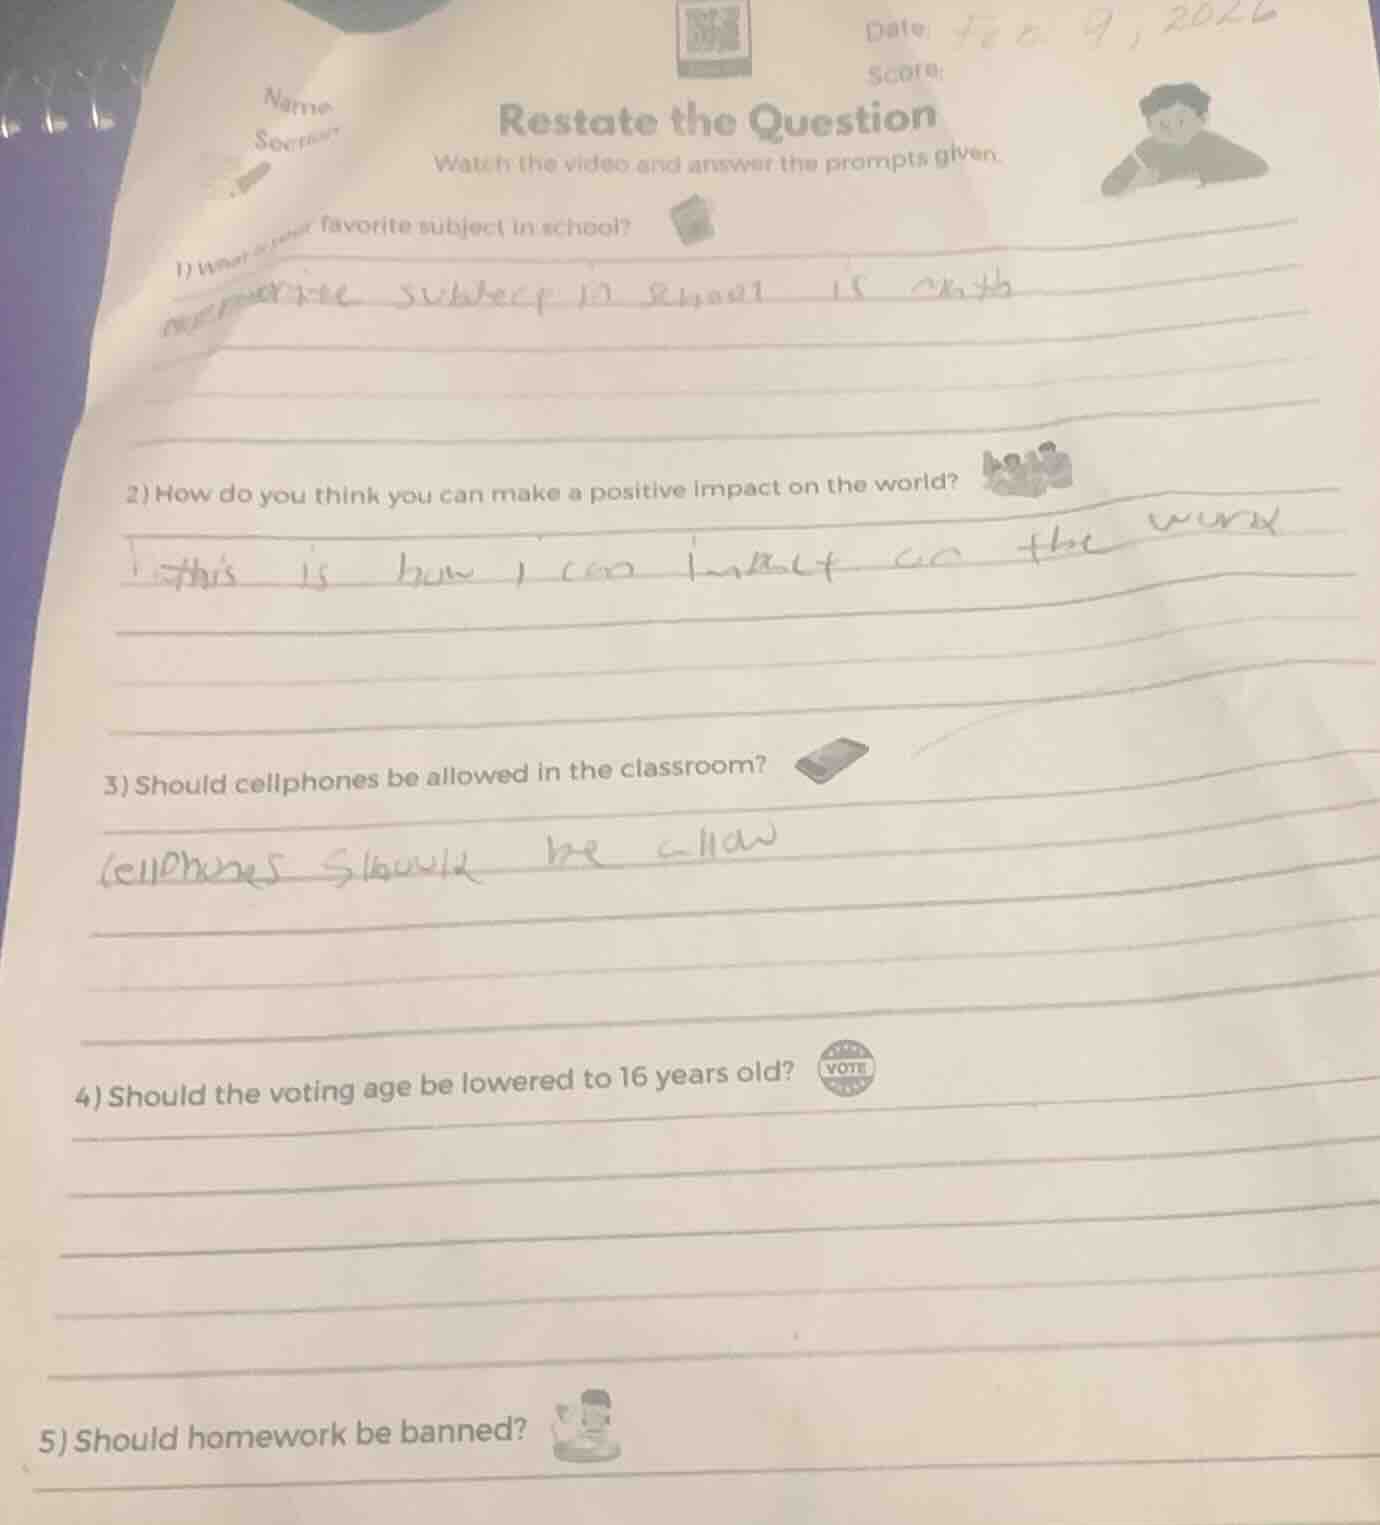 Date: Feb 9, 2026
Score:
Name
Section
Restate the Question
Watch the video and answer the prompts given.
1) What is your favorite subject in school?
in school is math
2) How do you think you can make a positive impact on the world?
this is how i can impact on the world
3) Should cellphones be allowed in the classroom?
Cellphones Should be allow
4) Should the voting age be lowered to 16 years old?
VOTE
5) Should homework be banned?